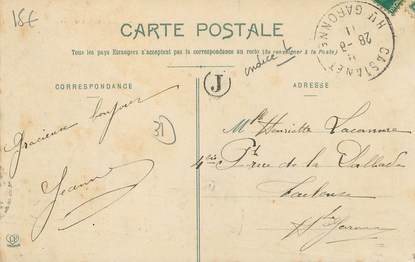 15€
CARTE POSTALE
Tous les pays Etrangers n'acceptent pas la correspondance au recto (Se renseigner à la Poste)
CASTANET
Hte GARONNE
28 -3
11
J
CORRESPONDANCE
ADRESSE
31
Gracieux bonjour
Jeanne
Mlle Henriette Lacamure
rue de la
Toulouse
Hte Garonne